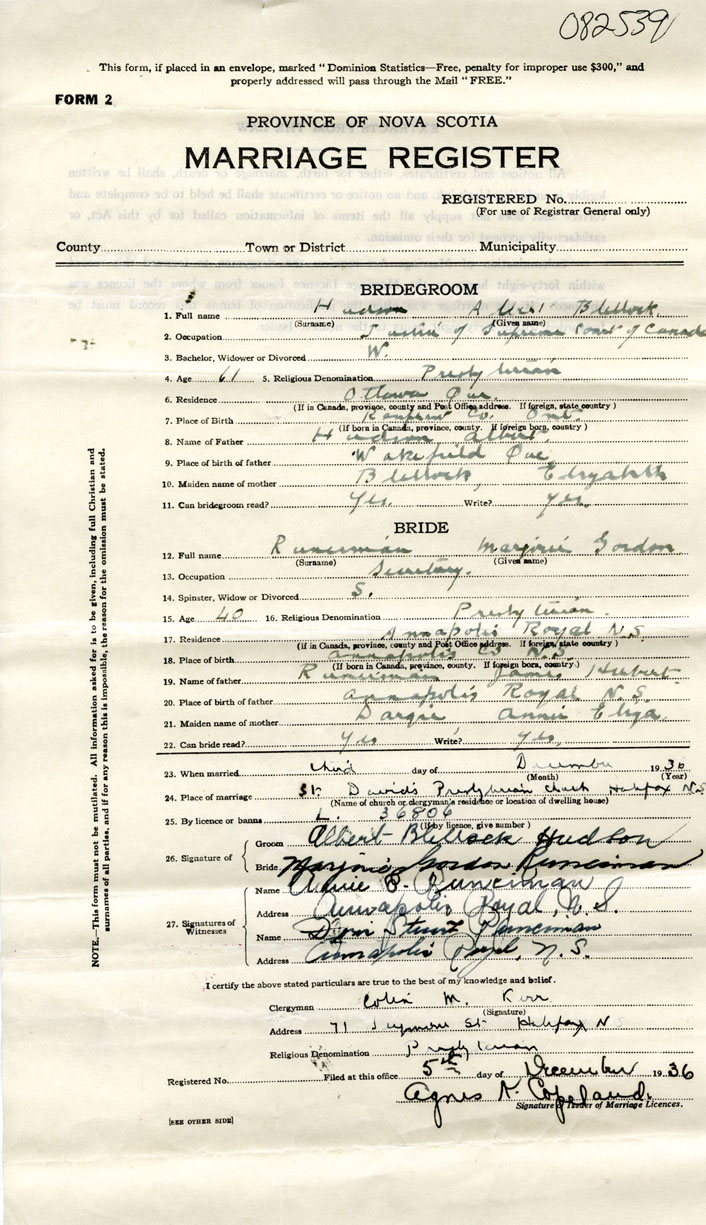 082539
This form, if placed in an envelope, marked "Dominion Statistics—Free, penalty for improper use $300," and
properly addressed will pass through the Mail "FREE."
FORM 2
PROVINCE OF NOVA SCOTIA
MARRIAGE REGISTER
REGISTERED No.
(For use of Registrar General only)
County Town or District Municipality
BRIDEGROOM
1. Full name Hudson Albert Blellock
(Surname) (Given name)
2. Occupation Justice of Supreme Court of Canada
3. Bachelor, Widower or Divorced W.
4. Age 61 5. Religious Denomination Presbyterian
6. Residence Ottawa Ont.
(If in Canada, province, county and Post Office address. If foreign, state country)
7. Place of Birth Renfrew Co. Ont.
(If born in Canada, province, county. If foreign born, country)
8. Name of Father Hudson Albert
9. Place of birth of father Wakefield Que
10. Maiden name of mother Blellock, Elizabeth
11. Can bridegroom read? Yes. Write? Yes.
BRIDE
12. Full name Runciman Marjorie Gordon
(Surname) (Given name)
13. Occupation Secretary.
14. Spinster, Widow or Divorced S.
15. Age 40 16. Religious Denomination Presbyterian.
17. Residence Annapolis Royal N.S.
(If in Canada, province, county and Post Office address. If foreign, state country)
18. Place of birth Annapolis Co. N.S.
(If born in Canada, province, county. If foreign born, country)
19. Name of father Runciman James Hubert
20. Place of birth of father Annapolis Royal N.S.
21. Maiden name of mother Dargie Annie Eliza
22. Can bride read? Yes Write? Yes.
23. When married third day of December 1936
(Month) (Year)
24. Place of marriage St. David's Presbyterian church Halifax N.S.
(Name of church or clergyman's residence or location of dwelling house)
25. By licence or banns L. 36806
(If by licence, give number)
26. Signature of Groom Albert Blellock Hudson
Bride Marjorie Gordon Runciman
27. Signatures of Witnesses Name Annie P. Runciman
Address Annapolis Royal, N.S.
Name Stuart Runciman
Address Annapolis Royal, N.S.
I certify the above stated particulars are true to the best of my knowledge and belief.
Clergyman Colin M. Kerr
(Signature)
Address 71 Seymour St Halifax N S
Religious Denomination Presbyterian
Registered No. Filed at this office 5th day of December 1936
Agnes N. Copeland.
Signature of Issuer of Marriage Licences.
[SEE OTHER SIDE]
NOTE.—This form must not be mutilated. All information asked for is to be given, including full Christian and
surnames of all parties, and if for any reason this is impossible, the reason for the omission must be stated.